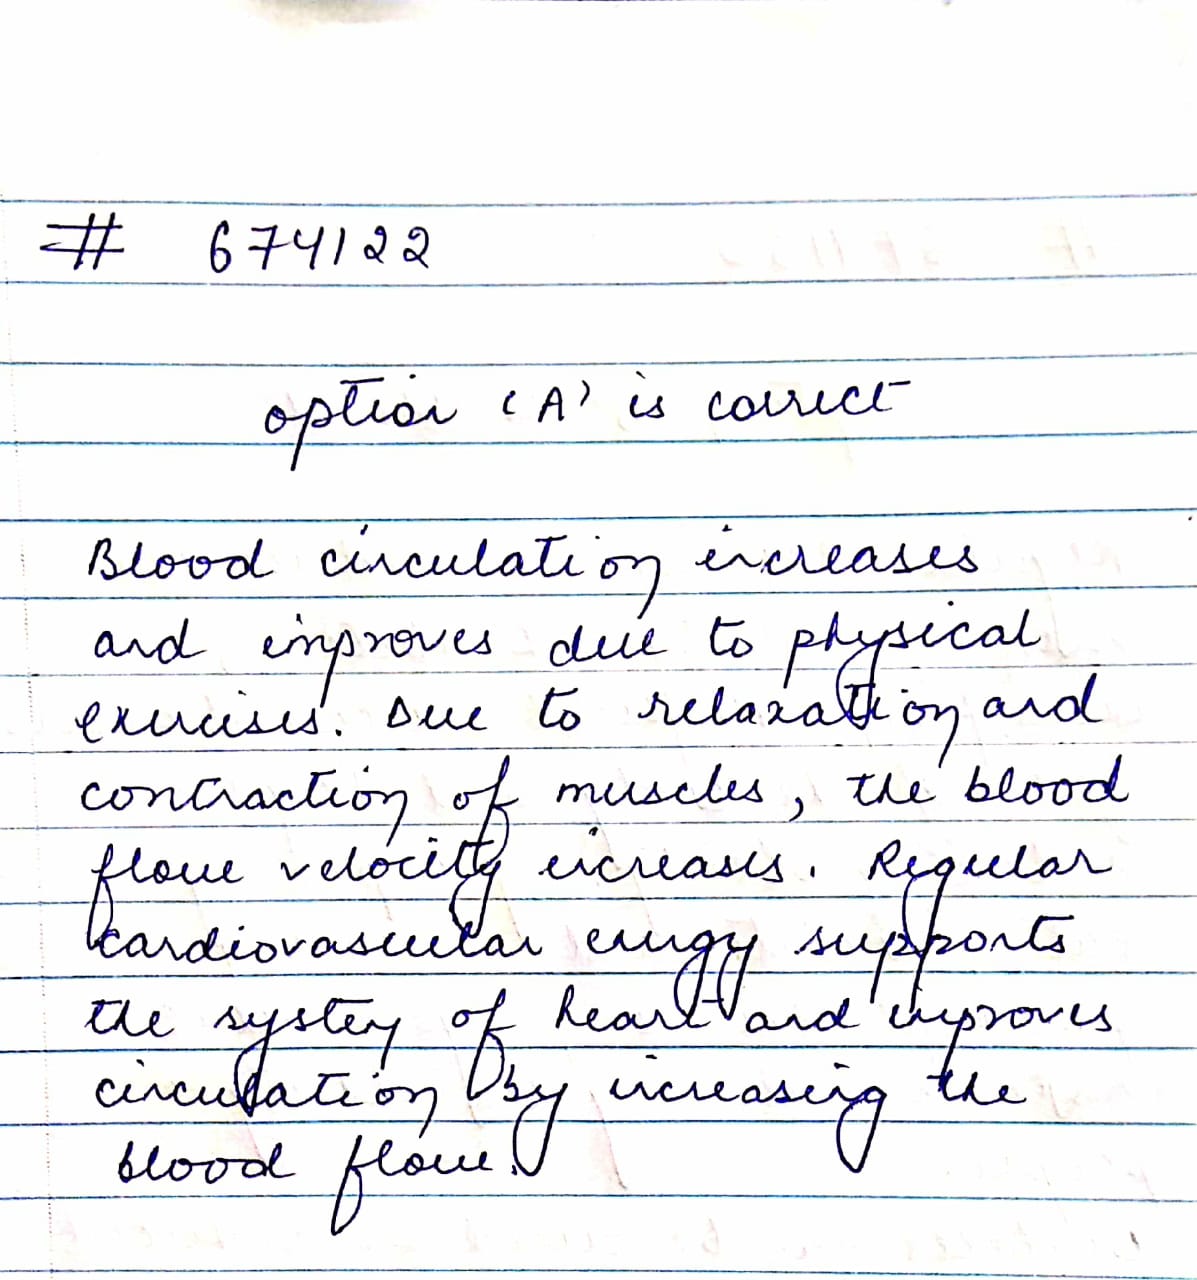 # 674122
option 'A' is correct
Blood circulation increases
and improves due to physical
exercises. Due to relaxation and
contraction of muscles, the blood
flow velocity increases. Regular
cardiovascular energy supports
the system of heart and improves
circulation by increasing the
blood flow.